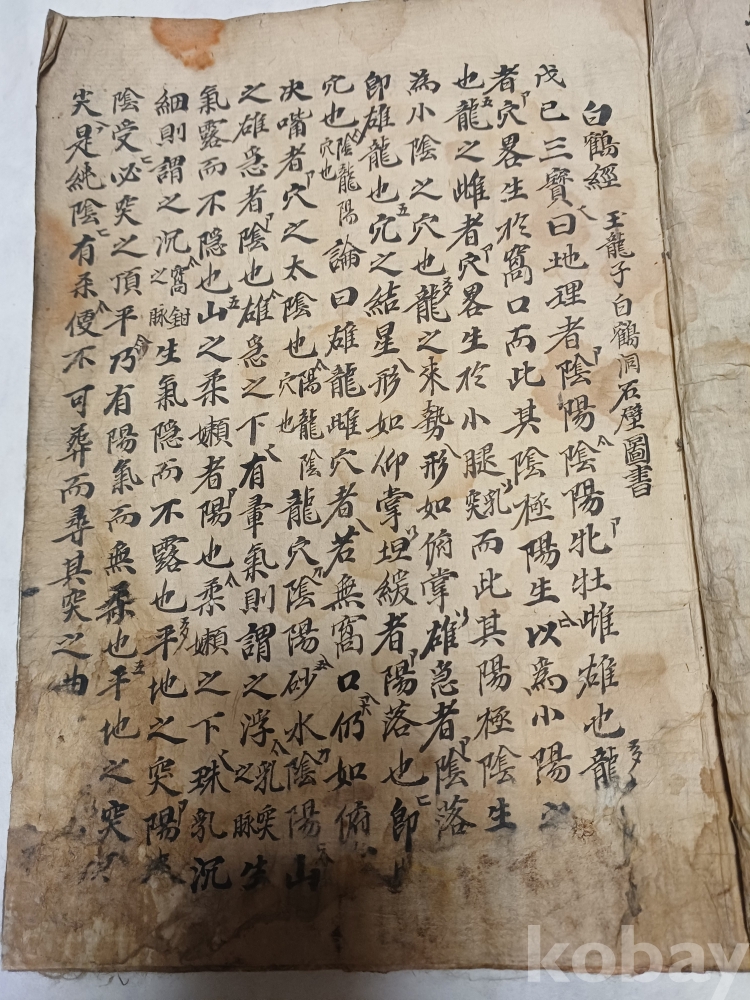 白鶴經 玉龍子白鶴洞石壁圖書
戊己三寶曰地理者陰陽陰陽牝牡雌雄也龍
者穴畧生於窩口而此其陰極陽生以爲小陽之
也龍之雌者穴畧生於小腿乳突而此其陽極陰生
為小陰之穴也龍之來勢形如俯掌雄急者陰落
卽雄龍也穴之結星形如仰掌坦緩者陽落也卽
穴也陰龍陽穴也論曰雄龍雌穴者若無窩口仍如俯
决嘴者穴之太陰也陽龍陰穴也龍穴陰陽砂水陰陽山
之雄急者陰也雄急之下有暈氣則謂之浮乳突之脉生
氣露而不隐也山之柔嫩者陽也柔嫩之下珠乳沉
細則謂之沉窩鉗之脉生氣隐而不露也平地之突陽
陰受必突之頂平乃有陽氣而無柔也平地之突
尖是純陰有柔便不可葬而尋其突之曲
kobay